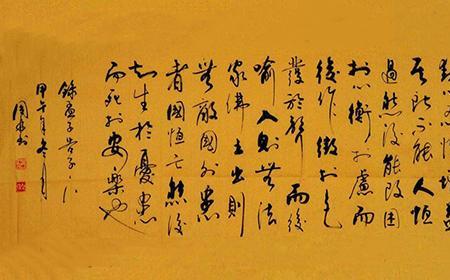 所不能人恒
過然後能改困
於心衡於慮而
後作徵於色
發於聲而後
喻入則無法
家拂士出則
無敵國外患
者國恒亡然後
知生於憂患
而死於安樂也
錄孟子
甲午年冬月